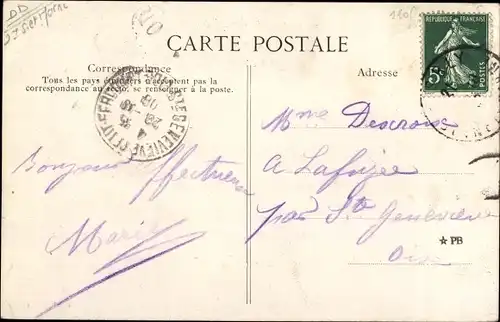 CARTE POSTALE
Correspondance
Tous les pays étrangers n'acceptent pas la
correspondance au recto, se renseigner à la poste.
Adresse
RÉPUBLIQUE FRANÇAISE
5c
Bonjour affectueux
Marie
Mme Descroix
A Lafosse
par Ste Geneviève
Oise
★ PB